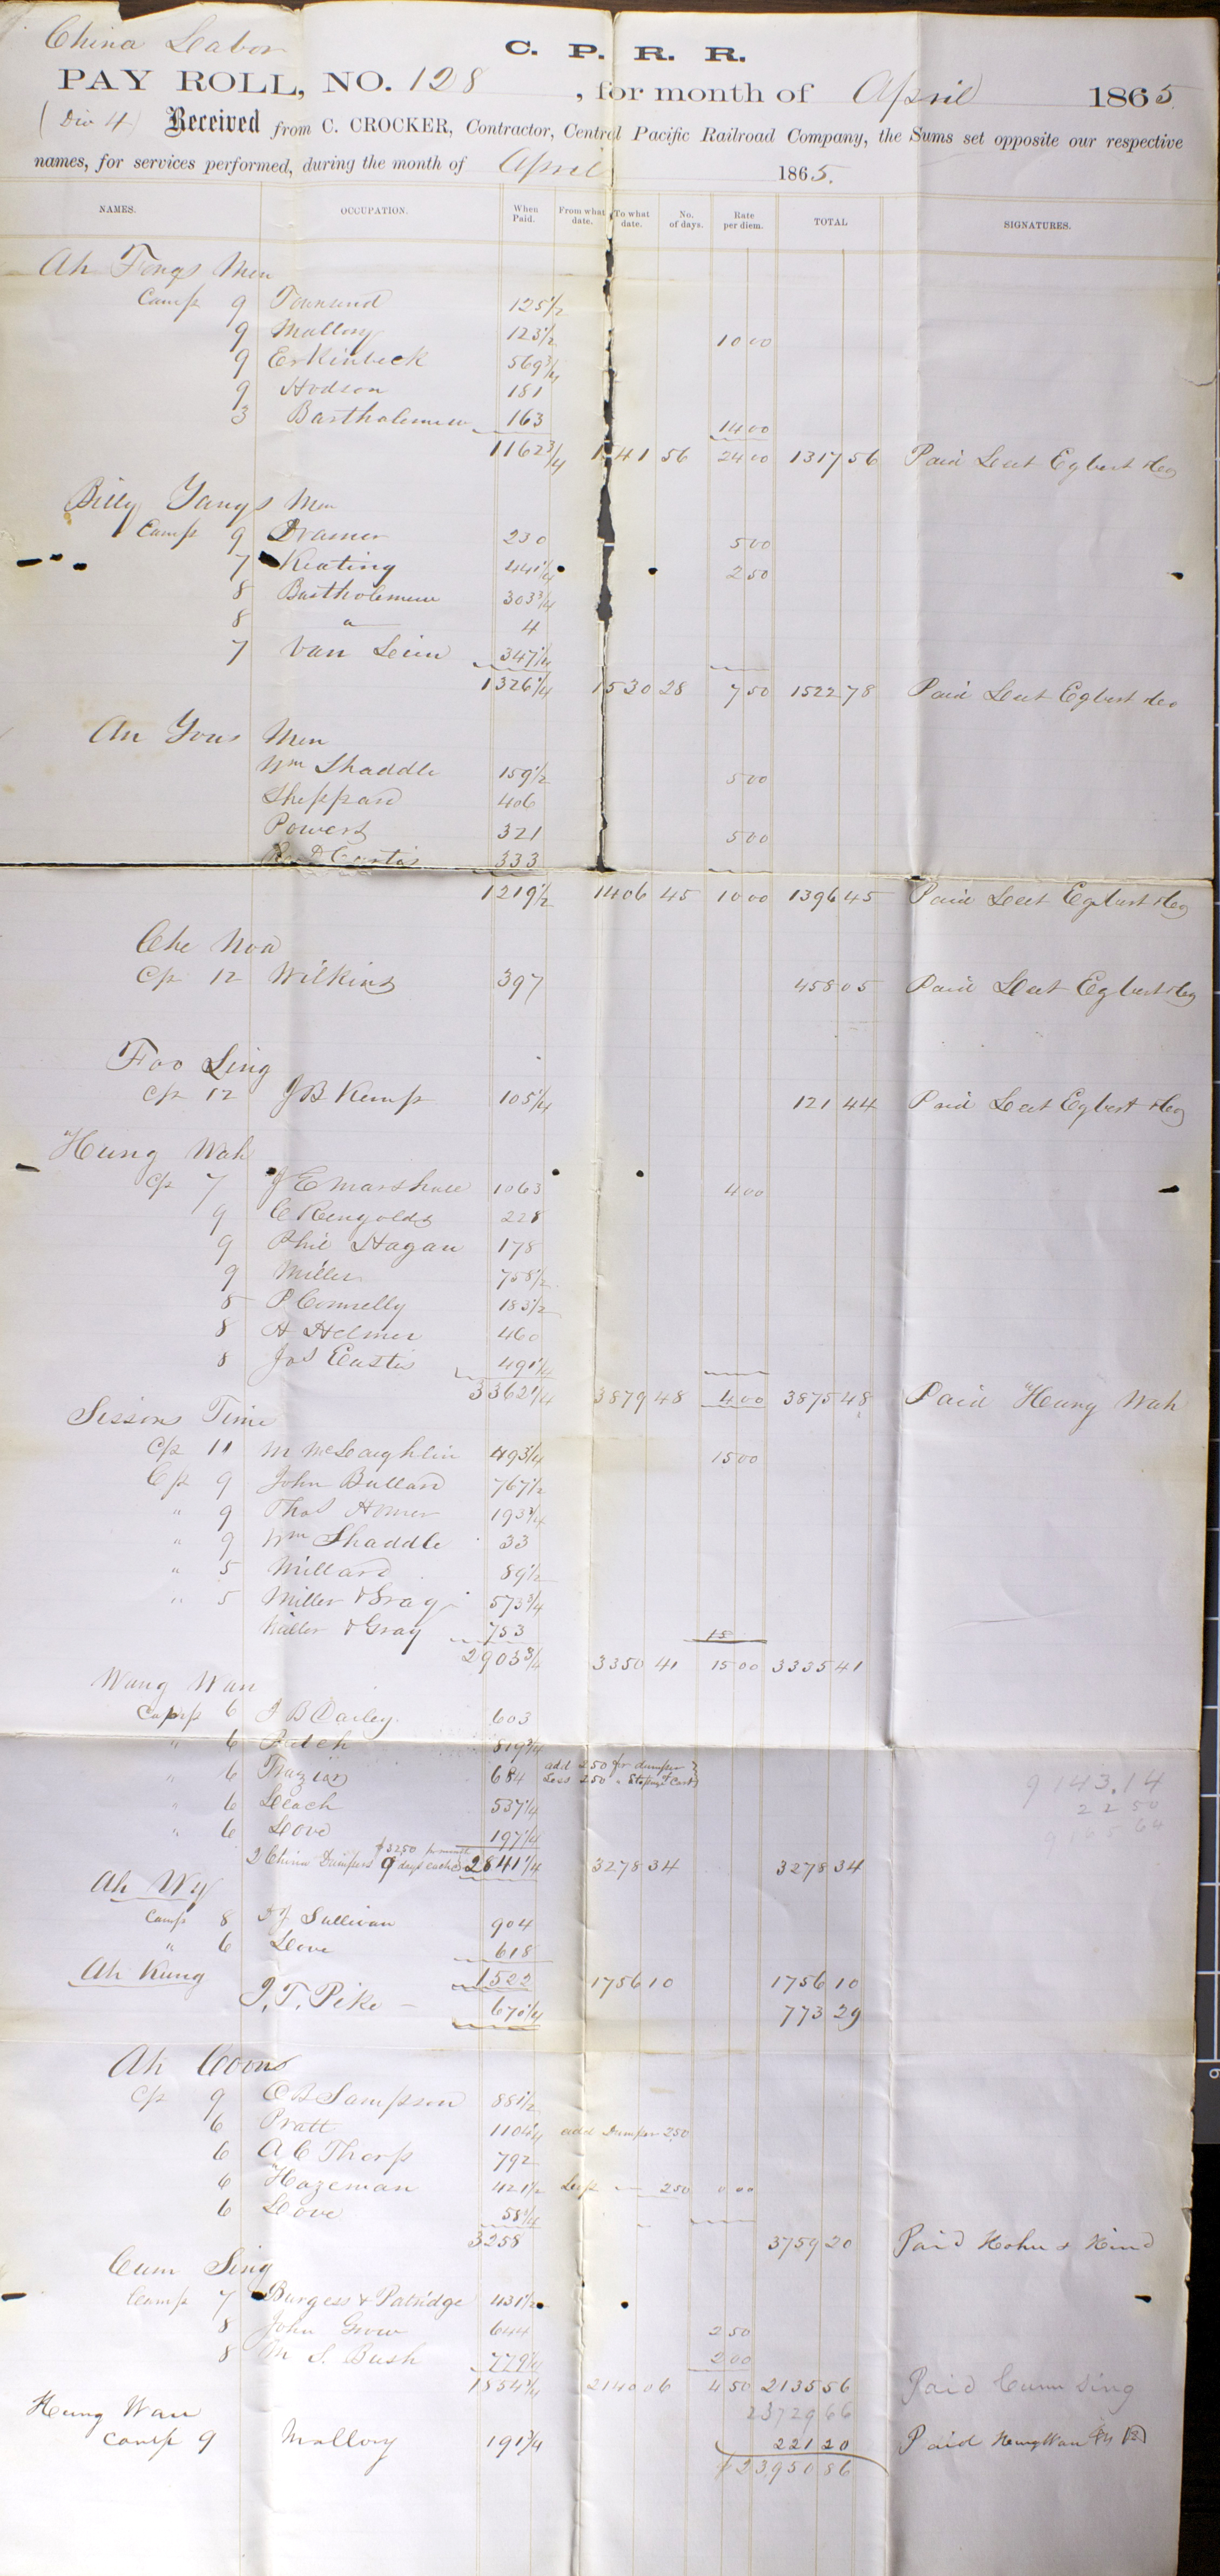 China Labor
C. P. R. R.
PAY ROLL, NO. 128, for month of April 1865
(Div 4) Received from C. CROCKER, Contractor, Central Pacific Railroad Company, the Sums set opposite our respective
names, for services performed, during the month of April 1865.
NAMES. OCCUPATION. When Paid. From what date. To what date. No. of days. Rate per diem. TOTAL SIGNATURES.
Ah Fongs Men
Camp 9 Townsend 125 1/2
9 Mallory 123 1/2 10 00
9 Erkinbeck 569 3/4
9 Hodson 181
3 Bartholemew 163 14 00
1162 3/4 1341 56 24 00 1317 56 Paid Leet Egbert &co
Billy Yangs Men
Camp 9 Dramer 230 5 00
7 Keating 441 1/4 2 50
8 Bartholemew 303 3/4
8 " 4
7 Van Leun 347 1/4
1326 1/4 1530 28 7 50 1522 78 Paid Leet Egbert &co
An Yous Men
Wm Shaddle 159 1/2 5 00
Sheppard 406
Powers 321 5 00
Curtis 333
1219 1/2 1406 45 10 00 1396 45 Paid Leet Egbert &co
Che Noa
Cp 12 Wilkins 397 458 05 Paid Leet Egbert &co
Foo Sing
Cp 12 J B Kemp 105 1/4 121 44 Paid Leet Egbert &co
Hung Wah
Cp 7 J E Marshall 1063 4 00
9 C Rengolds 228
9 Phil Hagan 178
9 Miller 758 1/2
8 P Connelly 183 1/2
8 H Helmer 460
8 Jas Eustis 491 1/4
3362 1/4 3879 48 4 00 3875 48 Paid Hung Wah
Sissons Time
Cp 11 M McLaughlin 493 1/4 15 00
Cp 9 John Bullard 767 1/2
" 9 Thos Homer 193 3/4
" 9 Wm Shaddle 33
" 5 Millard 89 1/2
" 5 Miller & Gray 573 3/4
Miller & Gray 753 15
2903 3/4 3350 41 15 00 3335 41
Wang Wan
Camp 6 J B Dailey 603
" 6 Patch 819 3/4
" 6 Frazier 684 add 2.50 for dumper
Less 2.50 " Stoping Cart
" 6 Leach 537 1/4
9143.14
22 50
" 6 Love 197 1/4
2 China Dumpers $32.50 per month 9 days each 2841 1/4 3278 34 3278 34
Ah Wy
Camp 8 J J Sullivan 904
" 6 Love 618
1522 1756 10 1756 10
Ah Kung
J. T. Pike 670 1/4 773 29
Ah Coons
Cp 9 C B Sampson 881 1/2
6 Pratt 1104 3/4 add Dumper 2.50
6 A C Thorp 792
6 Hazeman 421 1/2 Less 250 0 00
6 Love 58 1/4
3258 3759 20 Paid Hohn & Kind
Cum Sing
Camp 7 Burgess & Patridge 431 1/2
8 John Grow 644 2 50
8 M S. Bush 779 1/4 2 00
1854 3/4 2140 06 4 50 2135 56 Paid Cum Sing
23729 66
Hung Wan
Camp 9 Mallory 191 3/4 221 20 Paid Hung Wan
$23950 86